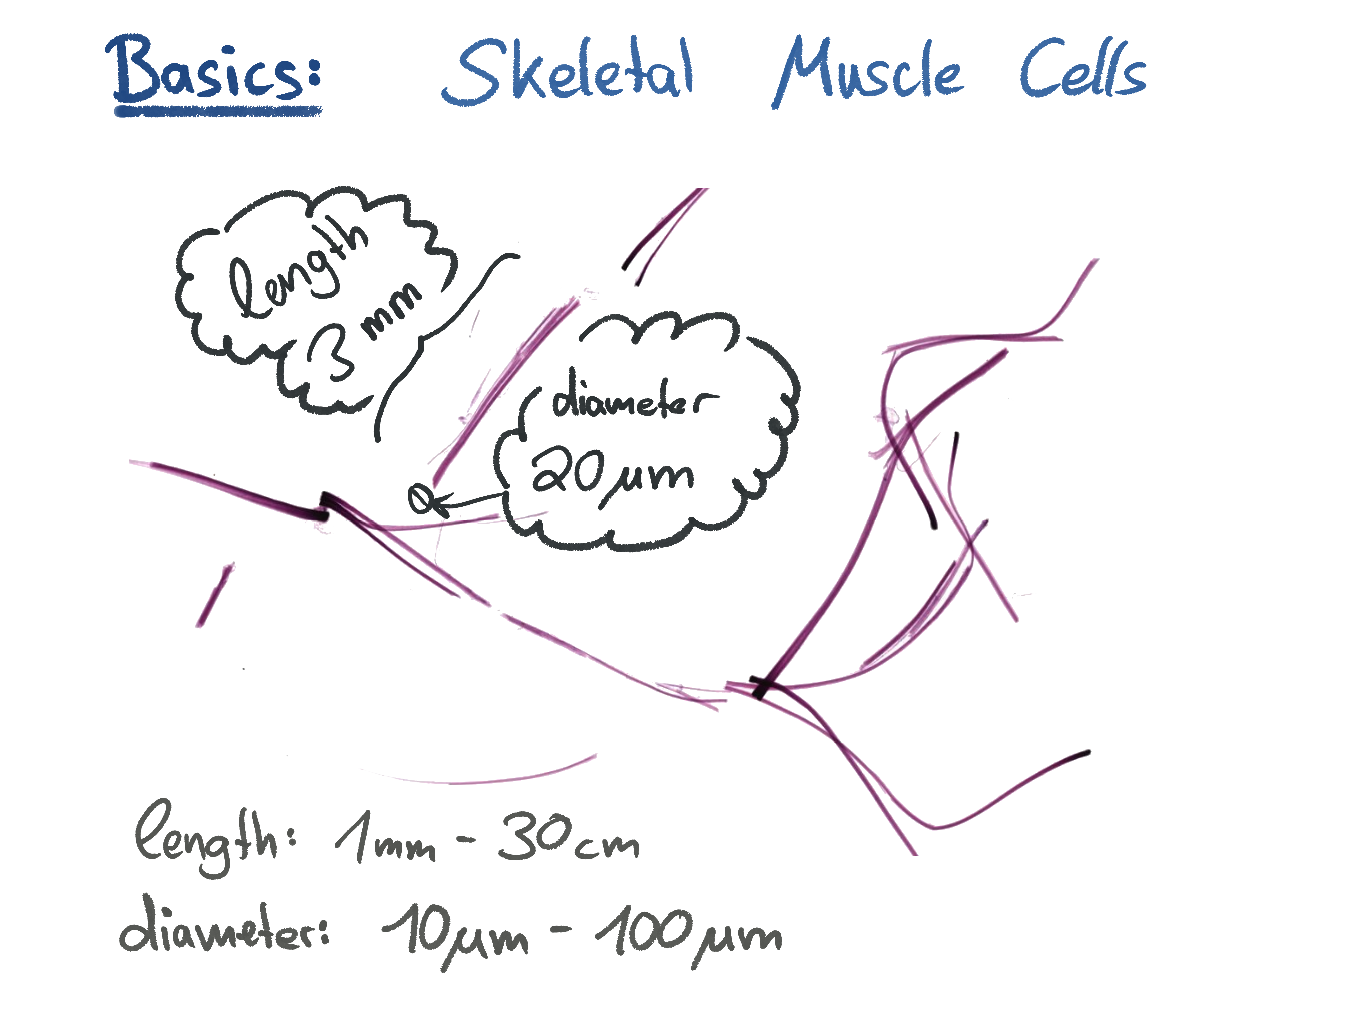 Basics: Skeletal Muscle Cells
length
3 mm
diameter
20 µm
length: 1mm - 30cm
diameter: 10µm - 100µm